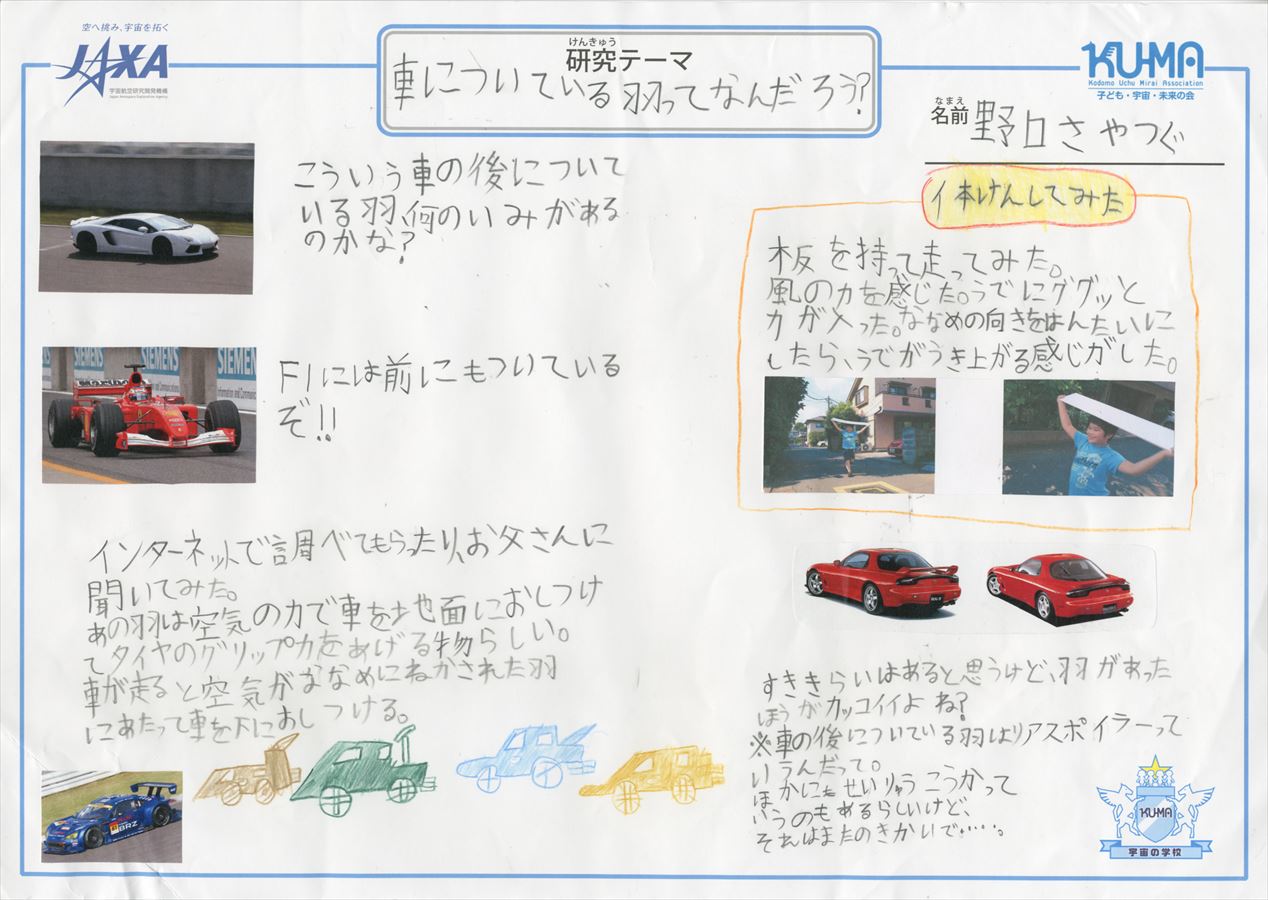 空へ挑み、宇宙を拓く
JAXA
宇宙航空研究開発機構
Japan Aerospace Exploration Agency
けんきゅう
研究テーマ
車についている羽ってなんだろう?
KU-MA
Kodomo Uchu Mirai Association
子ども・宇宙・未来の会
なまえ
名前 野口さやつぐ
こういう車の後について
いる羽、何のいみがある
のかな?
SIEMENS
SIEMENS
SIEMENS
F1には前にもついている
ぞ!!
インターネットで調べてもらったり、お父さんに
聞いてみた。
あの羽は空気の力で車を地面におしつけ
てタイヤのグリップ力をあげる物らしい。
車が走ると空気がななめにねかされた羽
にあたって車を下におしつける。
BRZ
体けんしてみた
板を持って走ってみた。
風の力を感じた。うでにググッと
力が入った。ななめの向きをはんたいに
したら、うでがうき上がる感じがした。
すききらいはあると思うけど、羽があった
ほうがカッコイイよね?
※車の後についている羽はリアスポイラーって
いうんだって。
ほかにも せいりゅうこうかって
いうのもあるらしいけど、
それはまたのきかいで・・・・。
KU-MA
宇宙の学校